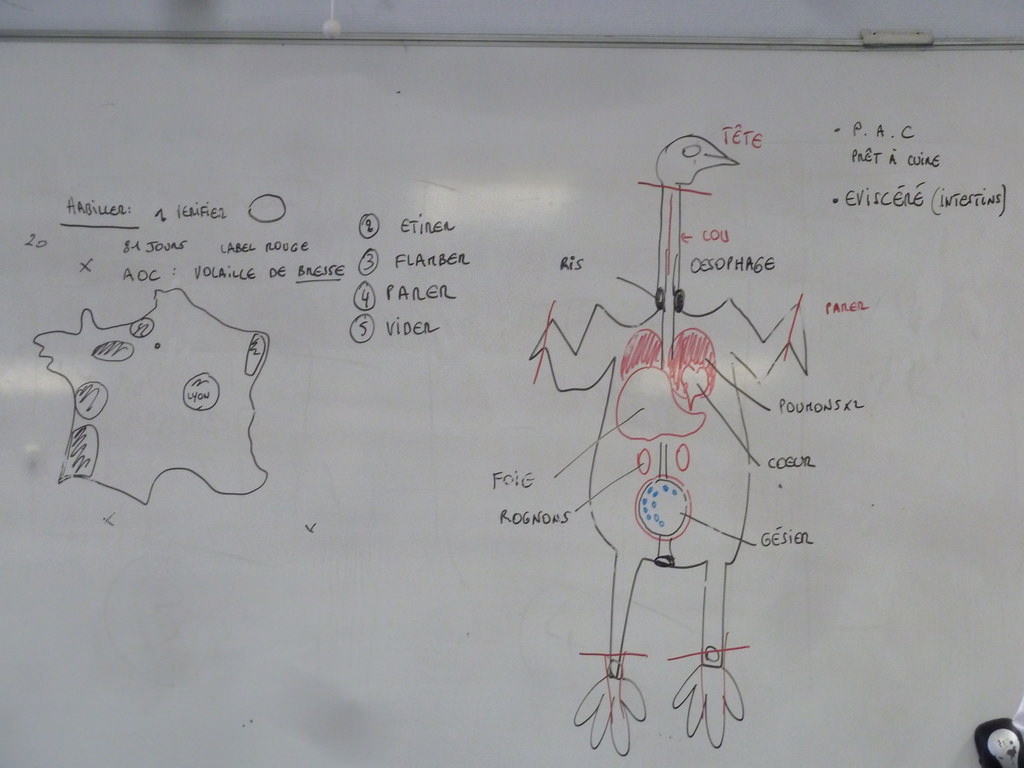 HABILLER: 1 VERIFIER
20
81 JOURS LABEL ROUGE
X AOC : VOLAILLE DE BRESSE
LYON
② ETIRER
③ FLAMBER
④ PARER
⑤ VIDER
TÊTE
← COU
RIS
OESOPHAGE
PARER
POUMONS X2
COEUR
FOIE
ROGNONS
GÉSIER
• P.A.C
PRÊT À CUIRE
• EVISCÉRÉ (INTESTINS)